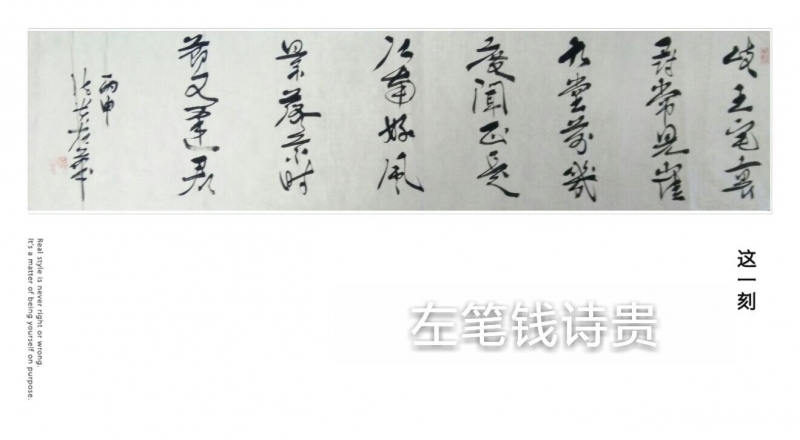 岐王宅裏
尋常見崔
九堂前幾
度聞正是
江南好風
景落花時
節又逢君
丙申
这一刻
左笔钱诗贵
Real style is never right or wrong.
It's a matter of being yourself on purpose.